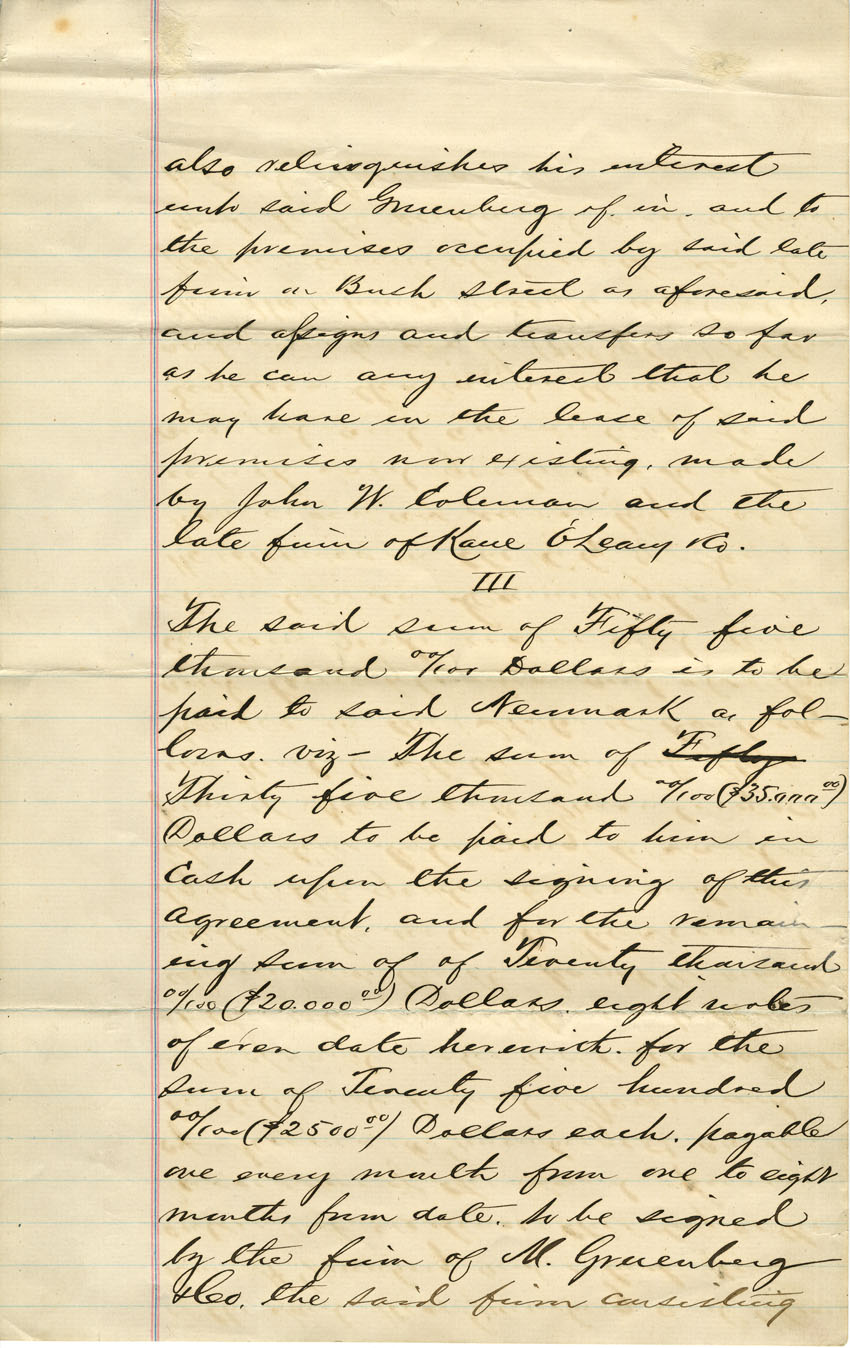 also relinquishes his interest
unto said Gruenberg of. in. and to
the premises occupied by said late
firm on Bush street as aforesaid,
and assigns and transfers so far
as he can any interest that he
may have in the lease of said
premises now existing, made
by John W. Coleman and the
late firm of Kane O'Leary & Co.
III
The said sum of Fifty five
thousand 00/100 Dollars is to be
paid to said Neumark as fol-
lows. viz- The sum of Fifty
Thirty five thousand 00/100 ($35.000 00)
Dollars to be paid to him in
Cash upon the signing of this
agreement, and for the remain-
ing sum of of Twenty thousand
00/100 ($20.000 00) Dollars. eight notes
of even date herewith. for the
sum of Twenty five hundred
00/100 ($2500 00) Dollars each. payable
one every month from one to eight
months from date. to be signed
by the firm of M. Gruenberg
& Co. the said firm consisting